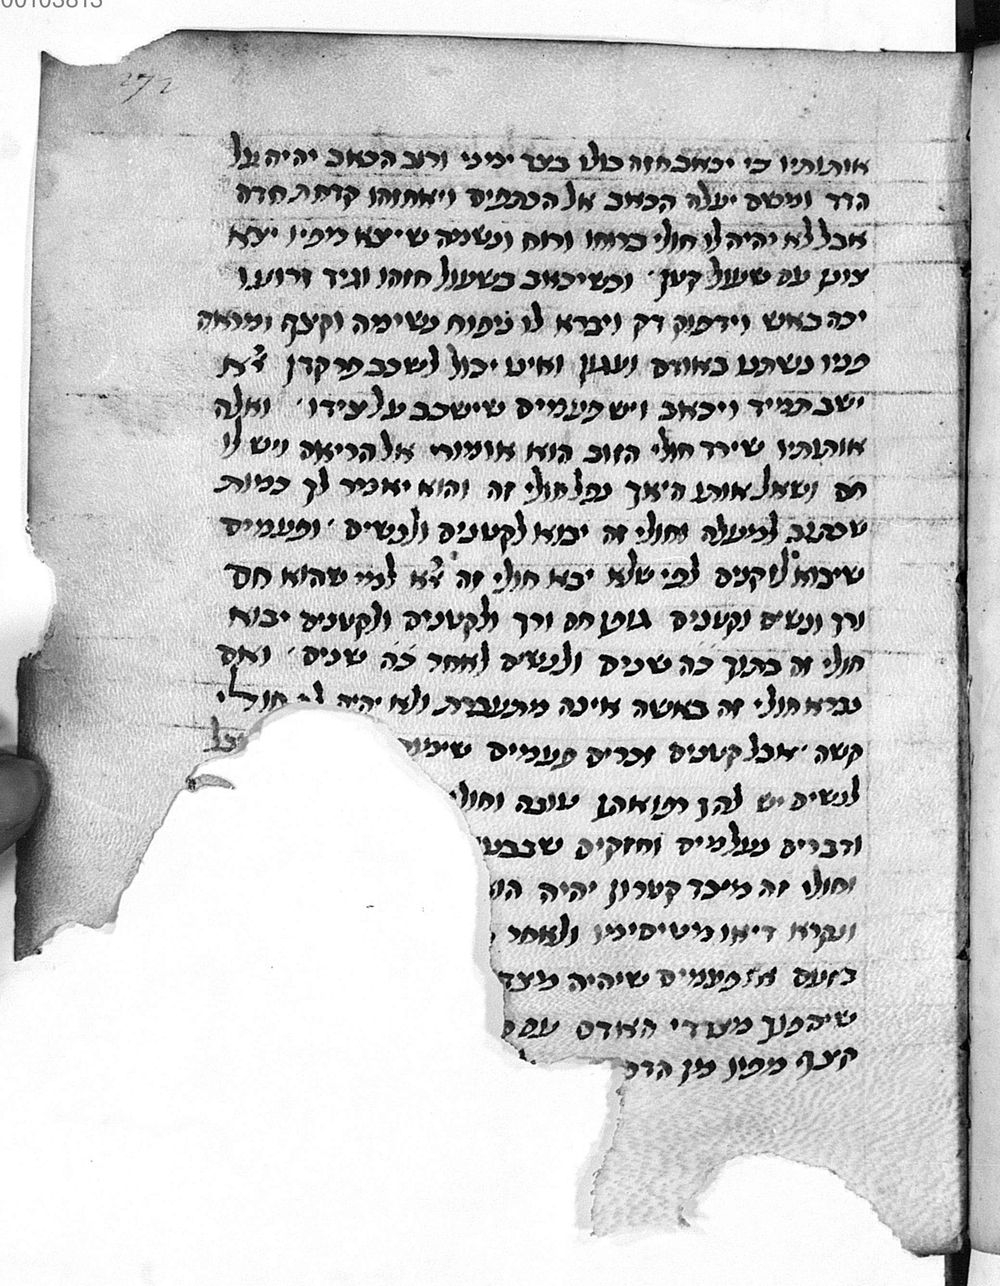 272
אותותיו כי יכאב חזה כולו בצד ימיני ורוב הכאב יהיה על
הדד ומשם יעלה הכאב אל הכתפים ויאחזהו קדחת חדה
אבל לא יהיה לו חולי ברוחו ורוח ונשמה שיוצא מפיו יצא
עם שעול קטן וכשיכאב בשעול חזהו וגיד זרועו
יכה כאש וידפוק דק ויברא לו ניפוח נשימה וקצף ומראה
פניו נשתנו באודם ואינו יכול לשכב פרקדן
ישב תמיד ויכאב ויש פעמים שישכב על צידו ואלה
אותותיו שירד חולי הזוב הוא אומורי אל הריאה ויש לו
חם ושאל אותו היאך נפל חולי זה והוא יאמר לך כמות
שכתוב למעלה וחולי זה יבוא לקטנים ולנשים ופעמים
שיבוא לזקנים לפי שלא יבא חולי זה למי שהוא חם
ורך ונשים וקטנים גופן חם ורך ולקטנים ולקטנים יבוא
חולי זה בתוך כה שנים ולנשים לאחר כה שנים ואם
נברא חולי זה באשה אינה מתעברת ולא יהיה חולי
קשה אבל קטנים זכרים פעמים
לנשים יש להן רפואתן
ודברים נעלמים וחזקים
וחולי זה יהיה
ונקרא ולאחר
בזעם או פעמים שיהיה מצד
שיהפוך מצדדי האדם
קצף מפיו מן